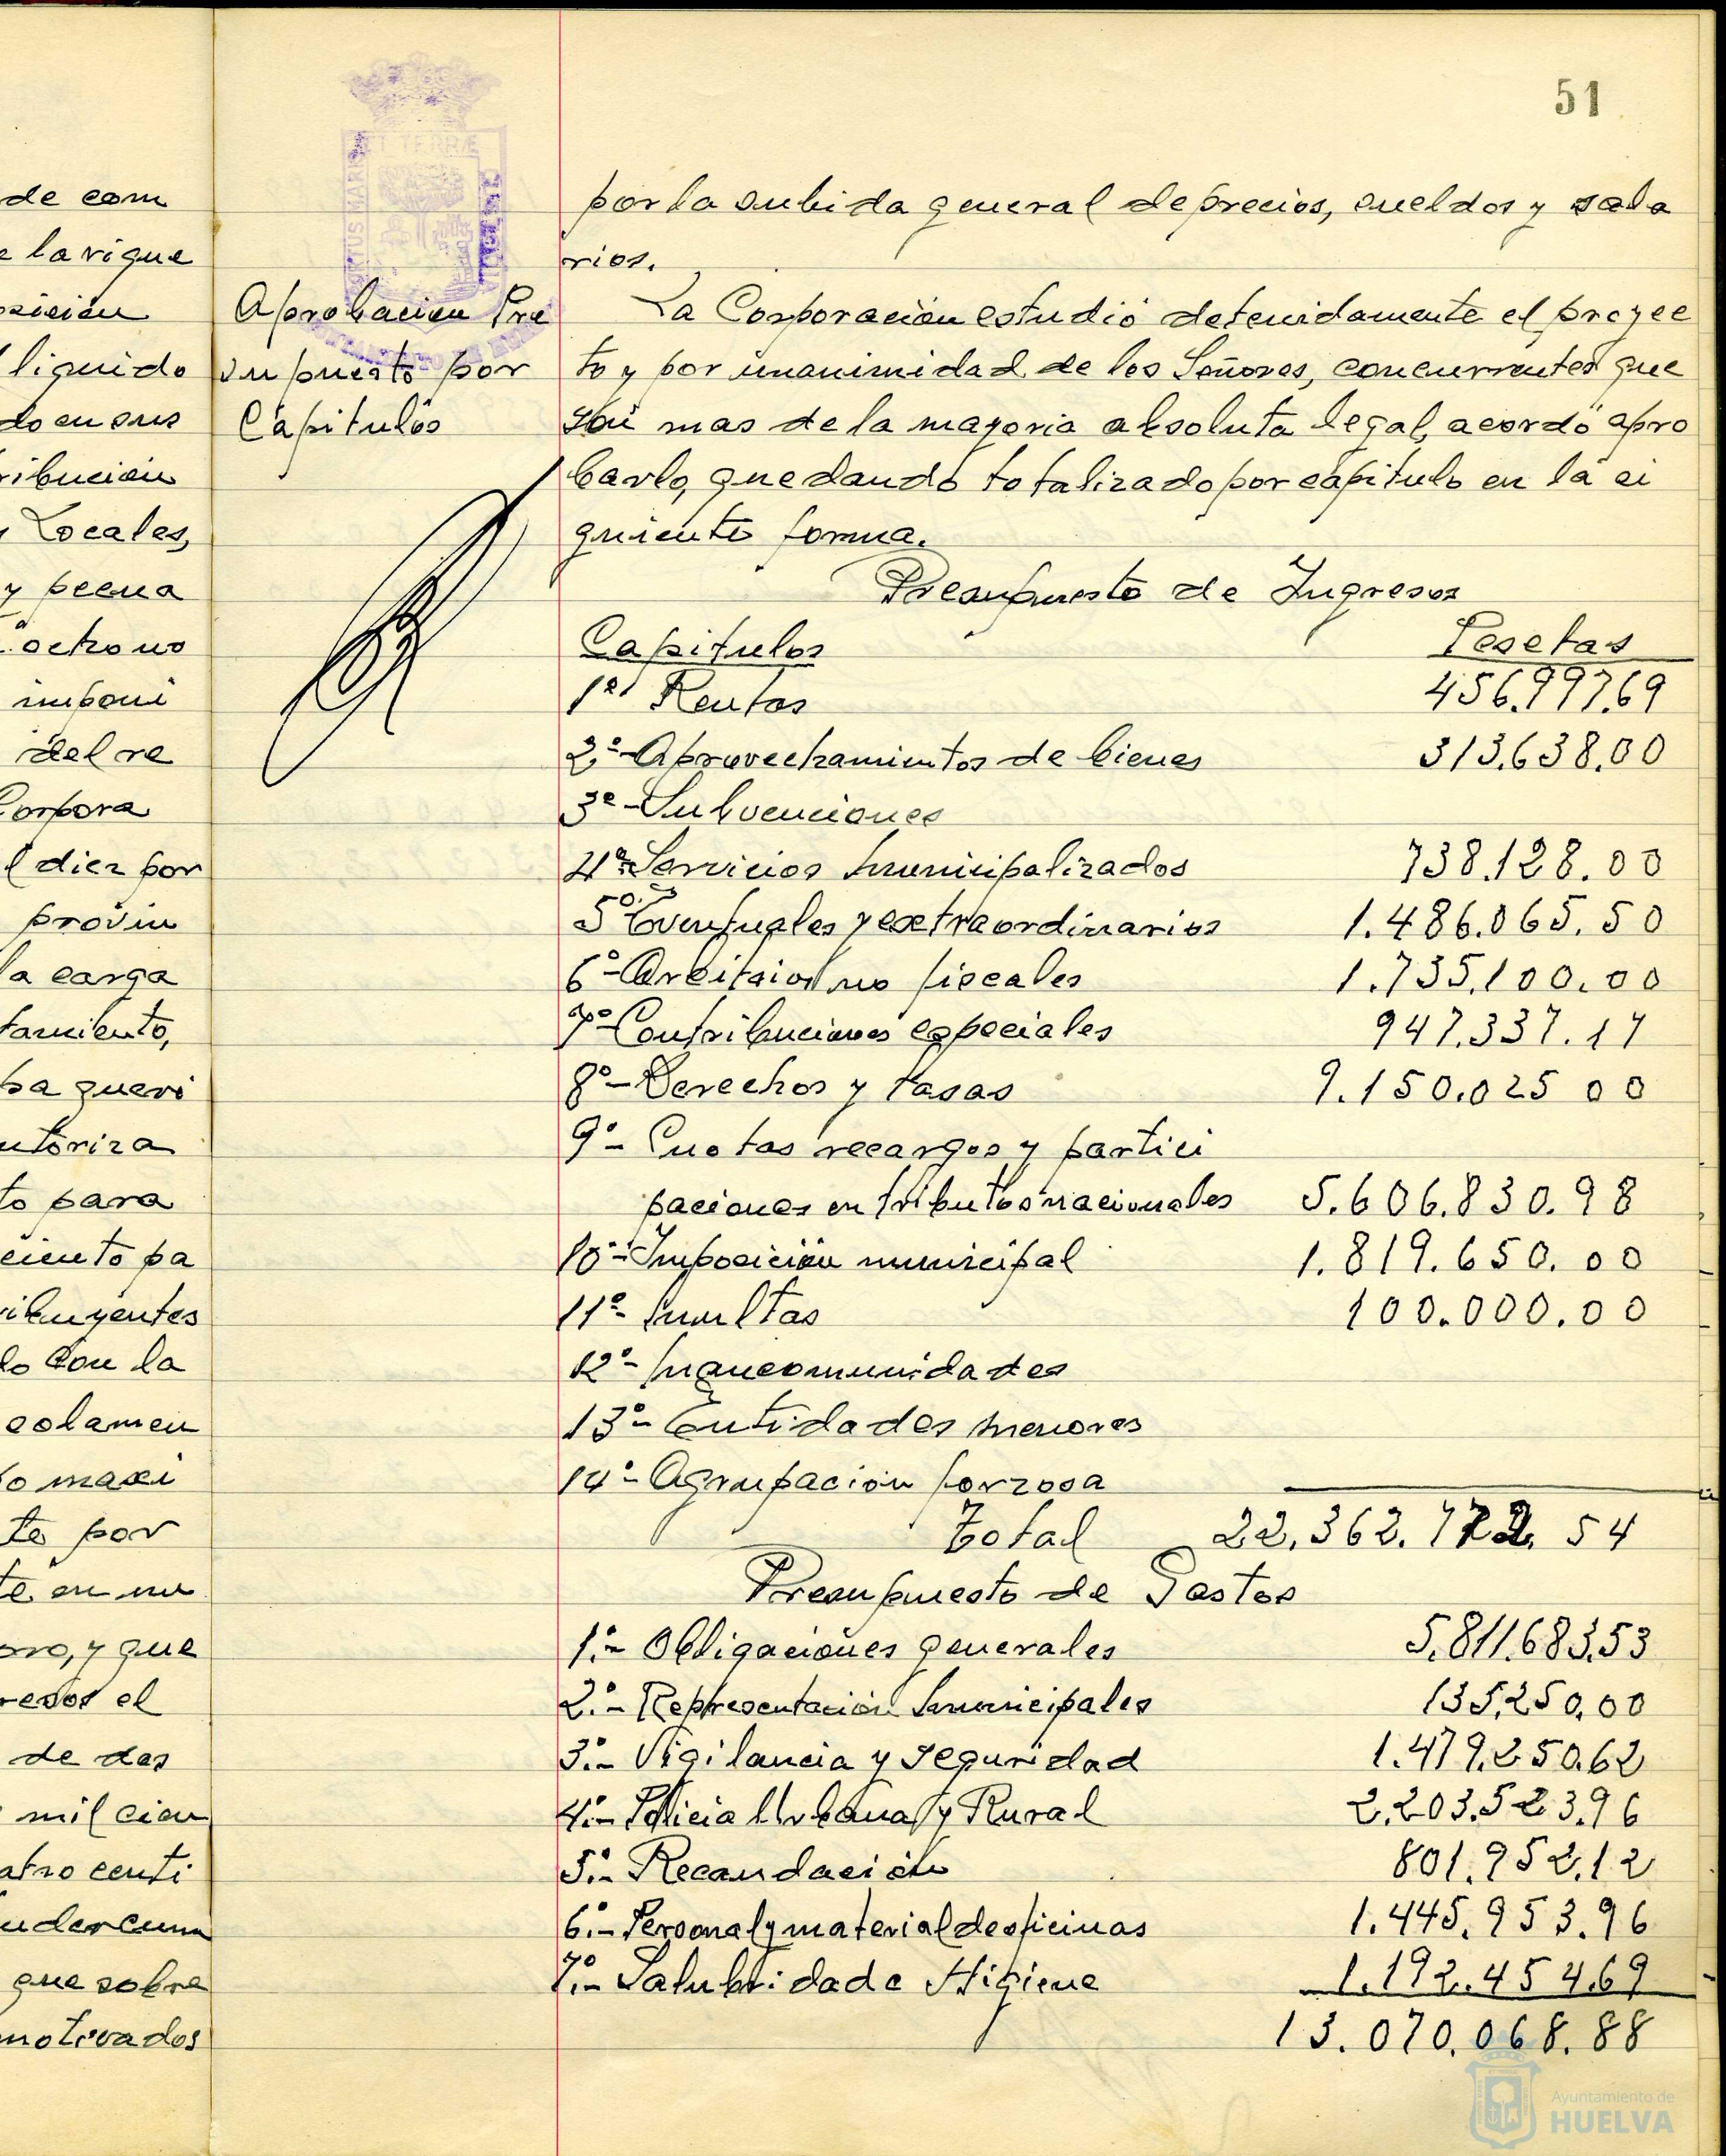 51
de com
la vigue
sición
líquido
do en sus
ribución
y Locales,
y pecua
ocho no
imponi
del re
Corpora
l diez por
provin
la carga
tamiento,
ba queri
utoriza
to para
ciento pa
ribuyentes
lo con la
solamen
o maxi
te por
te en un
oro, y que
resos el
de dos
mil cien
atro centi
que sobre
motivados
Aprobación Pre
supuesto por
Capítulos
por la subida general de precios, sueldos y sala
rios.
La Corporación estudió detenidamente el proyec
to y por unanimidad de los Señores, concurrentes que
son mas de la mayoria absoluta legal, acordó apro
barlo, quedando totalizado por capitulo en la si
guiente forma.
Presupuesto de Ingresos
Capitulos Pesetas
1º Rentas 456.997.69
2º- Aprovechamientos de bienes 313.638.00
3º- Subvenciones
4º- Servicios municipalizados 738.128.00
5º Eventuales y extraordinarios 1.486.065.50
6º- Arbitrios no fiscales 1.735.100.00
7º- Contribuciones especiales 947.337.17
8º- Derechos y tasas 9.150.025 00
9º- Cuotas recargos y partici
paciones en tributos nacionales 5.606.830.98
10º- Imposición municipal 1.819.650.00
11º- multas 100.000.00
12º- mancomunidades
13º- Entidades menores
14º- Agrupación forzosa
Total 22.362.772. 54
Presupuesto de Gastos
1º.- Obligaciones generales 5.811.683.53
2º.- Representación municipales 135.250.00
3º.- Vigilancia y seguridad 1.479.250.62
4º.- Policia Urbana y Rural 2.203.523.96
5º.- Recaudación 801.952.12
6º.- Personal y material de oficinas 1.445.953.96
7º.- Salubridad e Higiene 1.192.454.69
13.070.068.88
Ayuntamiento de
HUELVA